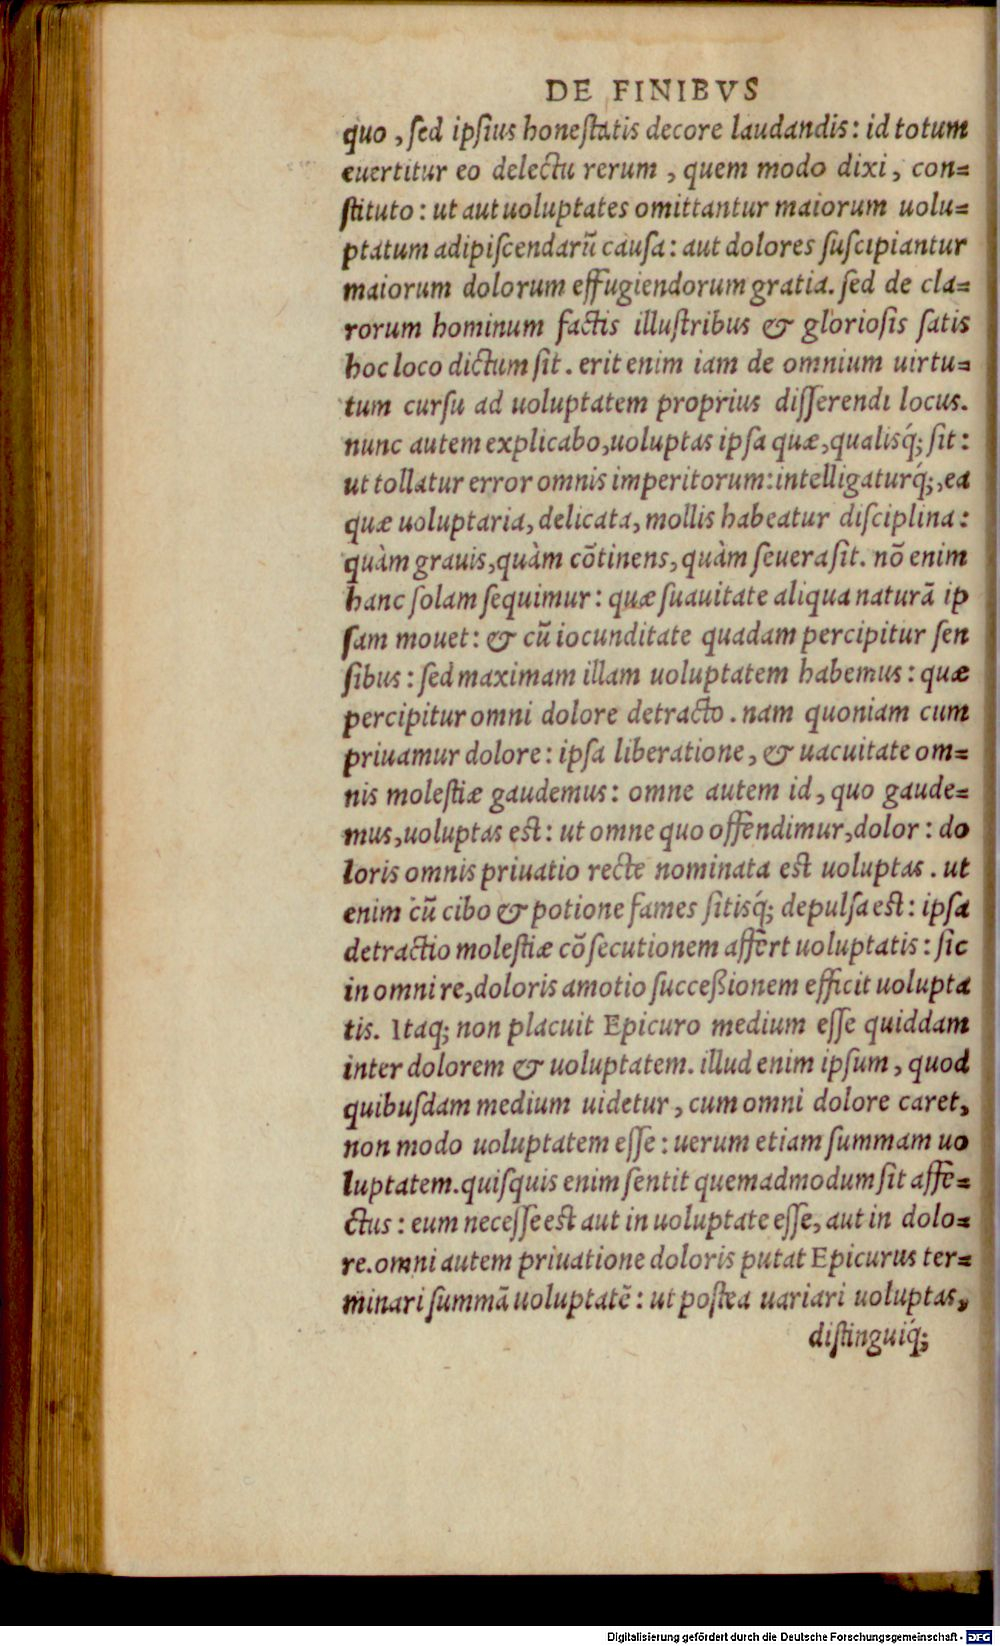 DE FINIBVS
quo, ſed ipſius honeſtatis decore laudandis: id totum
euertitur eo delectu rerum, quem modo dixi, con=
ſtituto: ut aut uoluptates omittantur maiorum uolu=
ptatum adipiſcendarũ cauſa: aut dolores ſuſcipiantur
maiorum dolorum effugiendorum gratia. ſed de cla=
rorum hominum factis illuſtribus & glorioſis ſatis
hoc loco dictum ſit. erit enim iam de omnium uirtu=
tum curſu ad uoluptatem proprius diſſerendi locus.
nunc autem explicabo, uoluptas ipſa quæ, qualisq́; ſit:
ut tollatur error omnis imperitorum: intelligaturq́;, ea
quæ uoluptaria, delicata, mollis habeatur diſciplina:
quàm grauis, quàm cõtinens, quàm ſeuera ſit. nõ enim
hanc ſolam ſequimur: quæ ſuauitate aliqua naturã ip
ſam mouet: & cũ iocunditate quadam percipitur ſen
ſibus: ſed maximam illam uoluptatem habemus: quæ
percipitur omni dolore detracto. nam quoniam cum
priuamur dolore: ipſa liberatione, & uacuitate om=
nis moleſtiæ gaudemus: omne autem id, quo gaude=
mus, uoluptas est: ut omne quo offendimur, dolor: do
loris omnis priuatio recte nominata est uoluptas. ut
enim cũ cibo & potione fames ſitisq́; depulſa est: ipſa
detractio moleſtiæ cõſecutionem affert uoluptatis: ſic
in omni re, doloris amotio ſucceßionem efficit uolupta
tis. Itaq; non placuit Epicuro medium eſſe quiddam
inter dolorem & uoluptatem. illud enim ipſum, quod
quibuſdam medium uidetur, cum omni dolore caret,
non modo uoluptatem eſſe: uerum etiam ſummam uo
luptatem. quiſquis enim ſentit quemadmodum ſit affe=
ctus: eum neceſſe est aut in uoluptate eſſe, aut in dolo=
re. omni autem priuatione doloris putat Epicurus ter=
minari ſummã uoluptatẽ: ut poſtea uariari uoluptas,
diſtinguiq́;
Digitalisierung gefördert durch die Deutsche Forschungsgemeinschaft - DFG